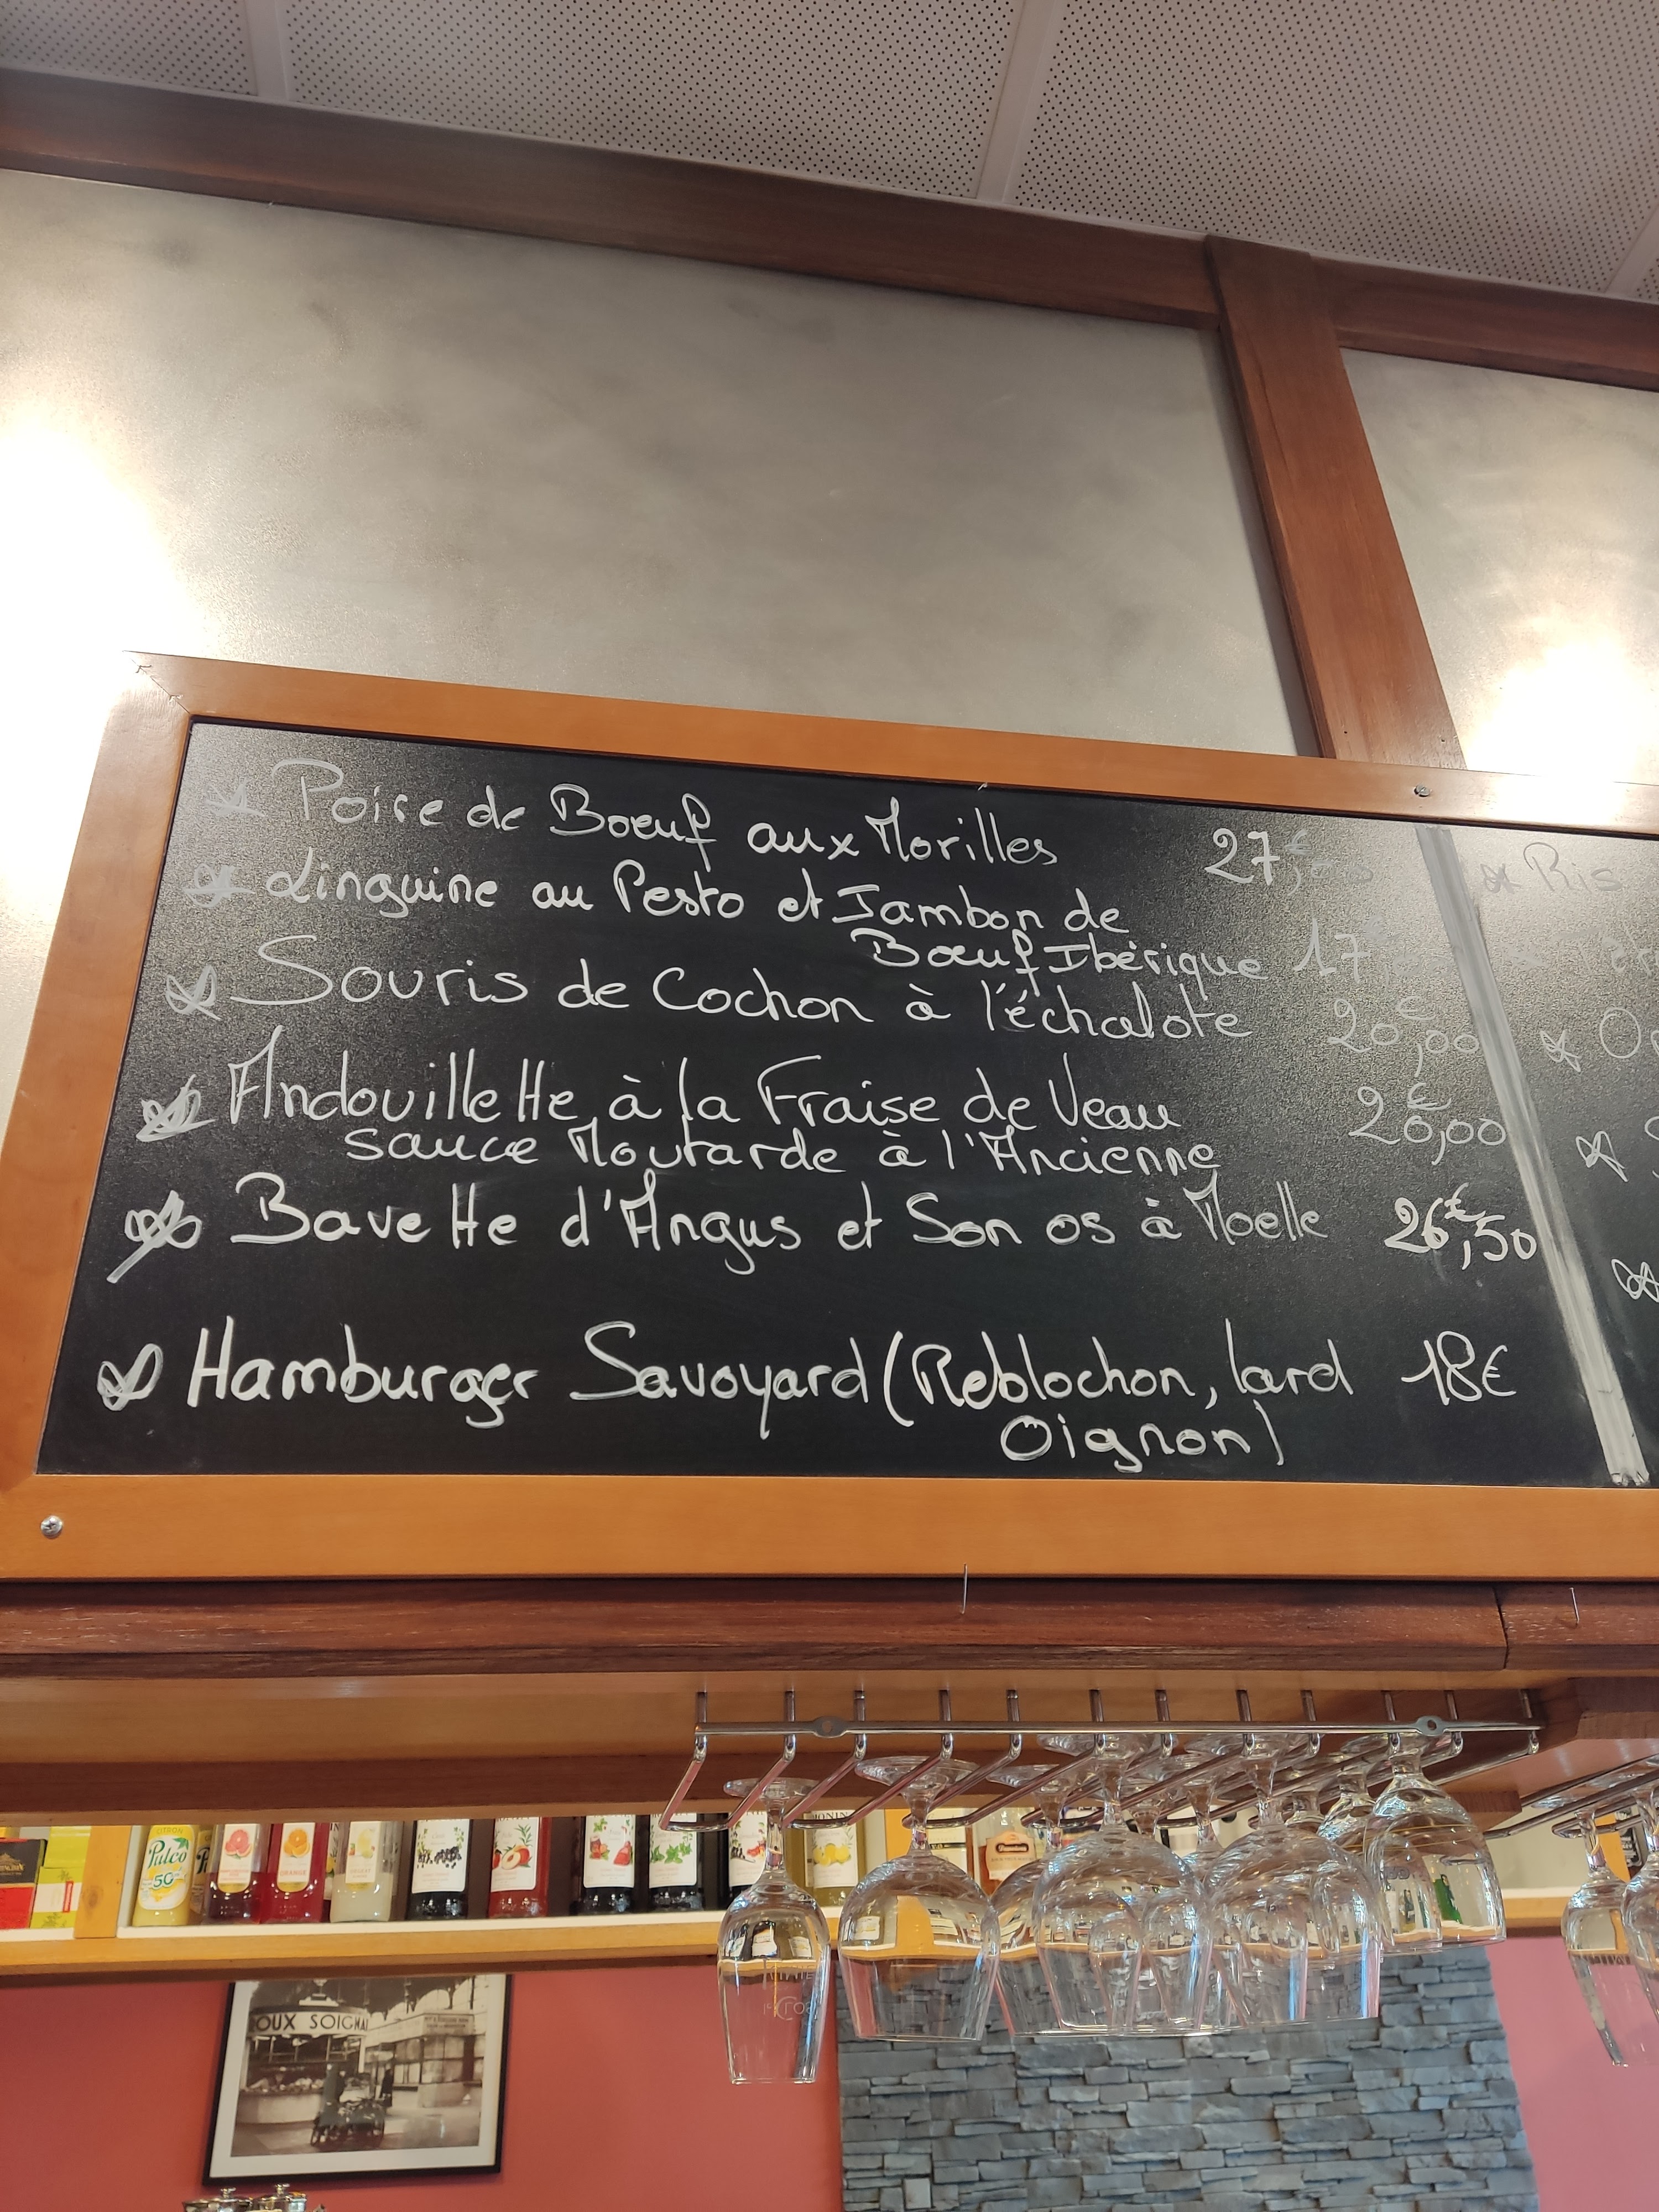 Poire de Boeuf aux Morilles 27,€
Linguine au Pesto et Jambon de
Boeuf Ibérique 17€
Souris de Cochon à l'échalote 20,00€
Andouillette à la Fraise de Veau 20,00€
sauce Moutarde à l'Ancienne
Bavette d'Angus et Son os à Moelle 26,50€
Hamburger Savoyard (Reblochon, lard 18€
Oignon)
Ris
CITRON
Pulco
50
ORANGE
OUX SOIGNA